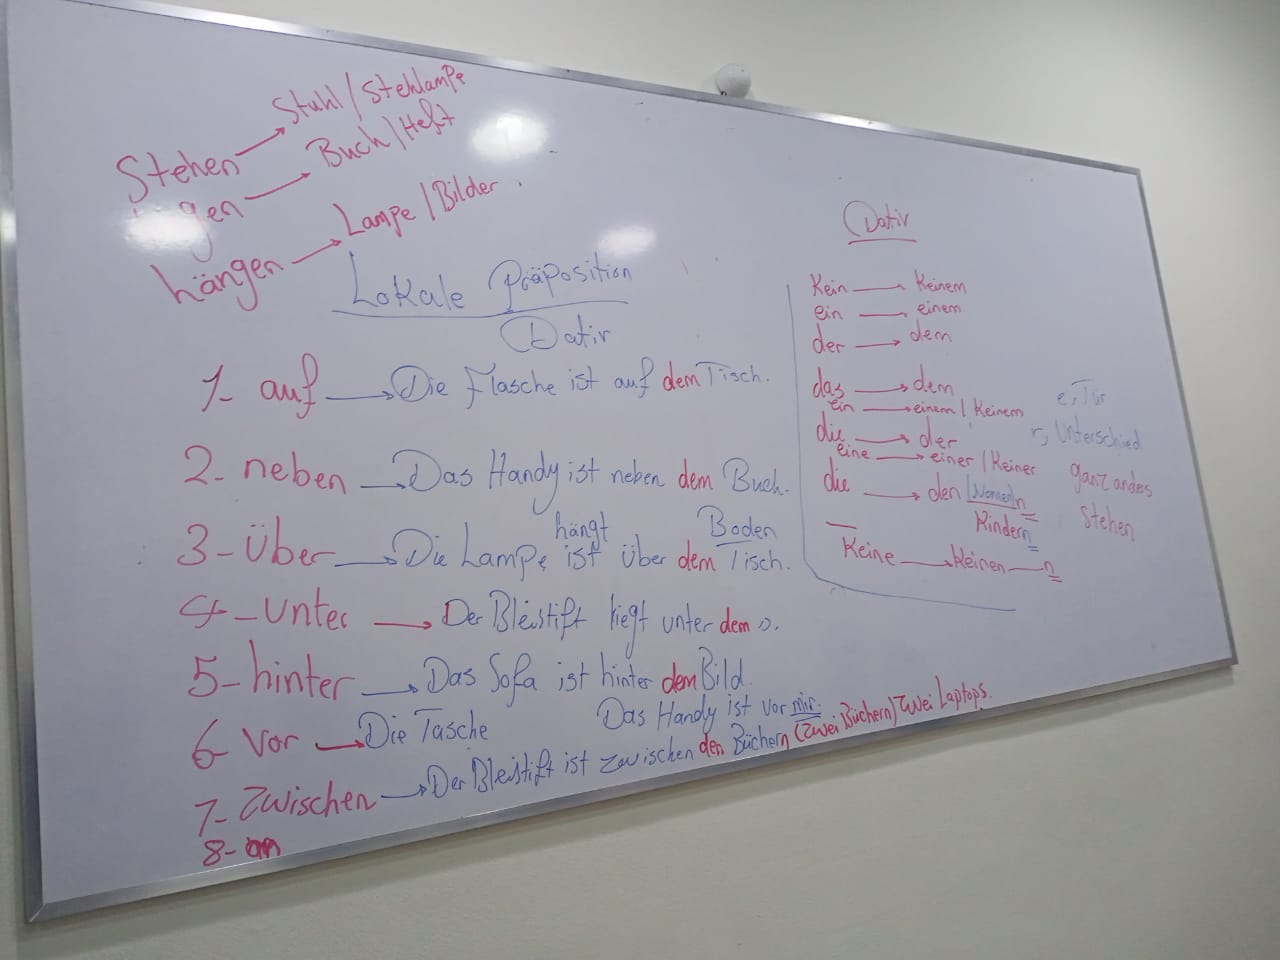 Stehen → Stuhl / Stehlampe
gen → Buch / Heft
hängen → Lampe / Bilder
Lokale Präposition
Dativ
1- auf → Die Flasche ist auf dem Tisch.
2- neben → Das Handy ist neben dem Buch.
hängt Boden
3- Über → Die Lampe ist über dem Tisch.
4- unter → Der Bleistift liegt unter dem
5- hinter → Das Sofa ist hinter dem Bild.
6- Vor → Die Tasche Das Handy ist vor mir.
7- Zwischen → Der Bleistift ist zwischen den Büchern (zwei Büchern) zwei Laptops.
8- an
Dativ
Kein → Keinem
ein → einem
der → dem
das → dem
ein → einem / Keinem
die → der
eine → einer / Keiner
die → den Nomen n
Kindern
Keine → Keinen — n
e, Tür
r, Unterschied
ganz anders
Stehen